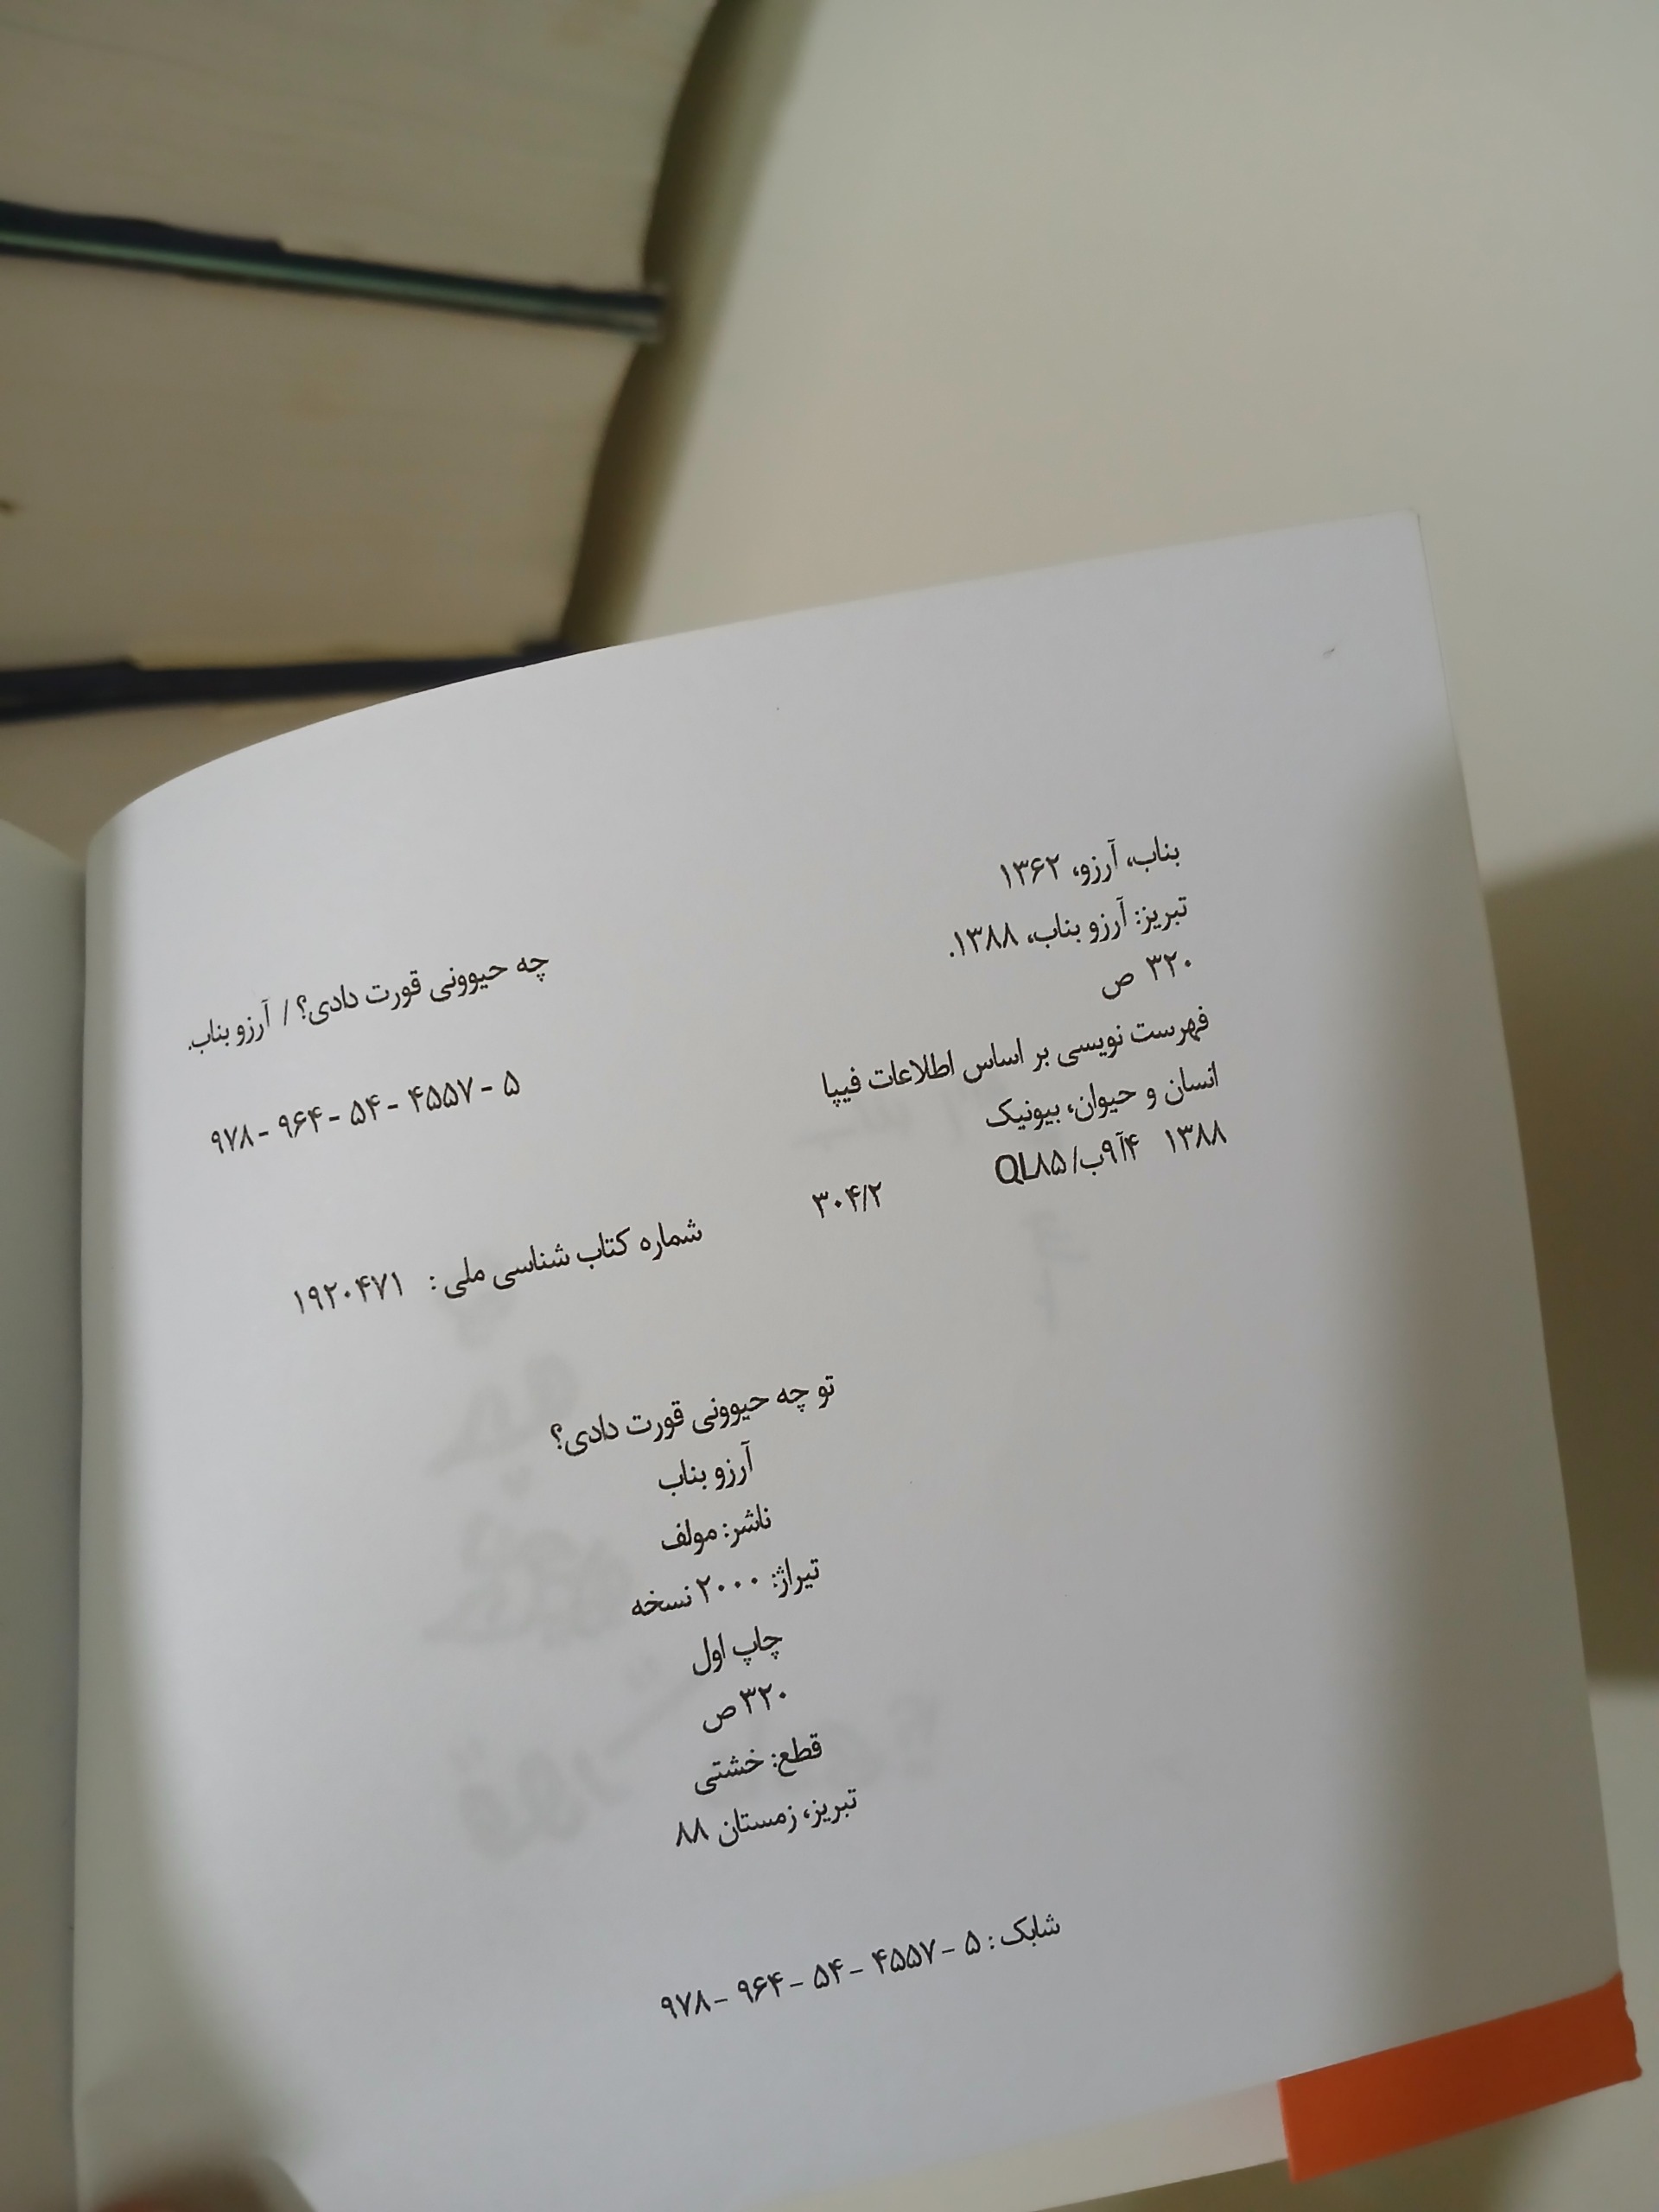 بناب، آرزو، ۱۳۶۲
چه حیوونی قورت دادی؟ / آرزو بناب.
تبریز: آرزو بناب، ۱۳۸۸.
۳۲۰ ص
۹۷۸ - ۹۶۴ - ۵۴ - ۴۵۵۷ - ۵
فهرست نویسی بر اساس اطلاعات فیپا
انسان و حیوان، بیونیک
۱۳۸۸ ۴آ۹ب/ QL۸۵
۳۰۴/۲
شماره کتاب شناسی ملی : ۱۹۲۰۴۷۱
تو چه حیوونی قورت دادی؟
آرزو بناب
ناشر: مولف
تیراژ: ۲۰۰۰ نسخه
چاپ اول
۳۲۰ ص
قطع: خشتی
تبریز، زمستان ۸۸
شابک : ۵ - ۴۵۵۷ - ۵۴ - ۹۶۴ - ۹۷۸